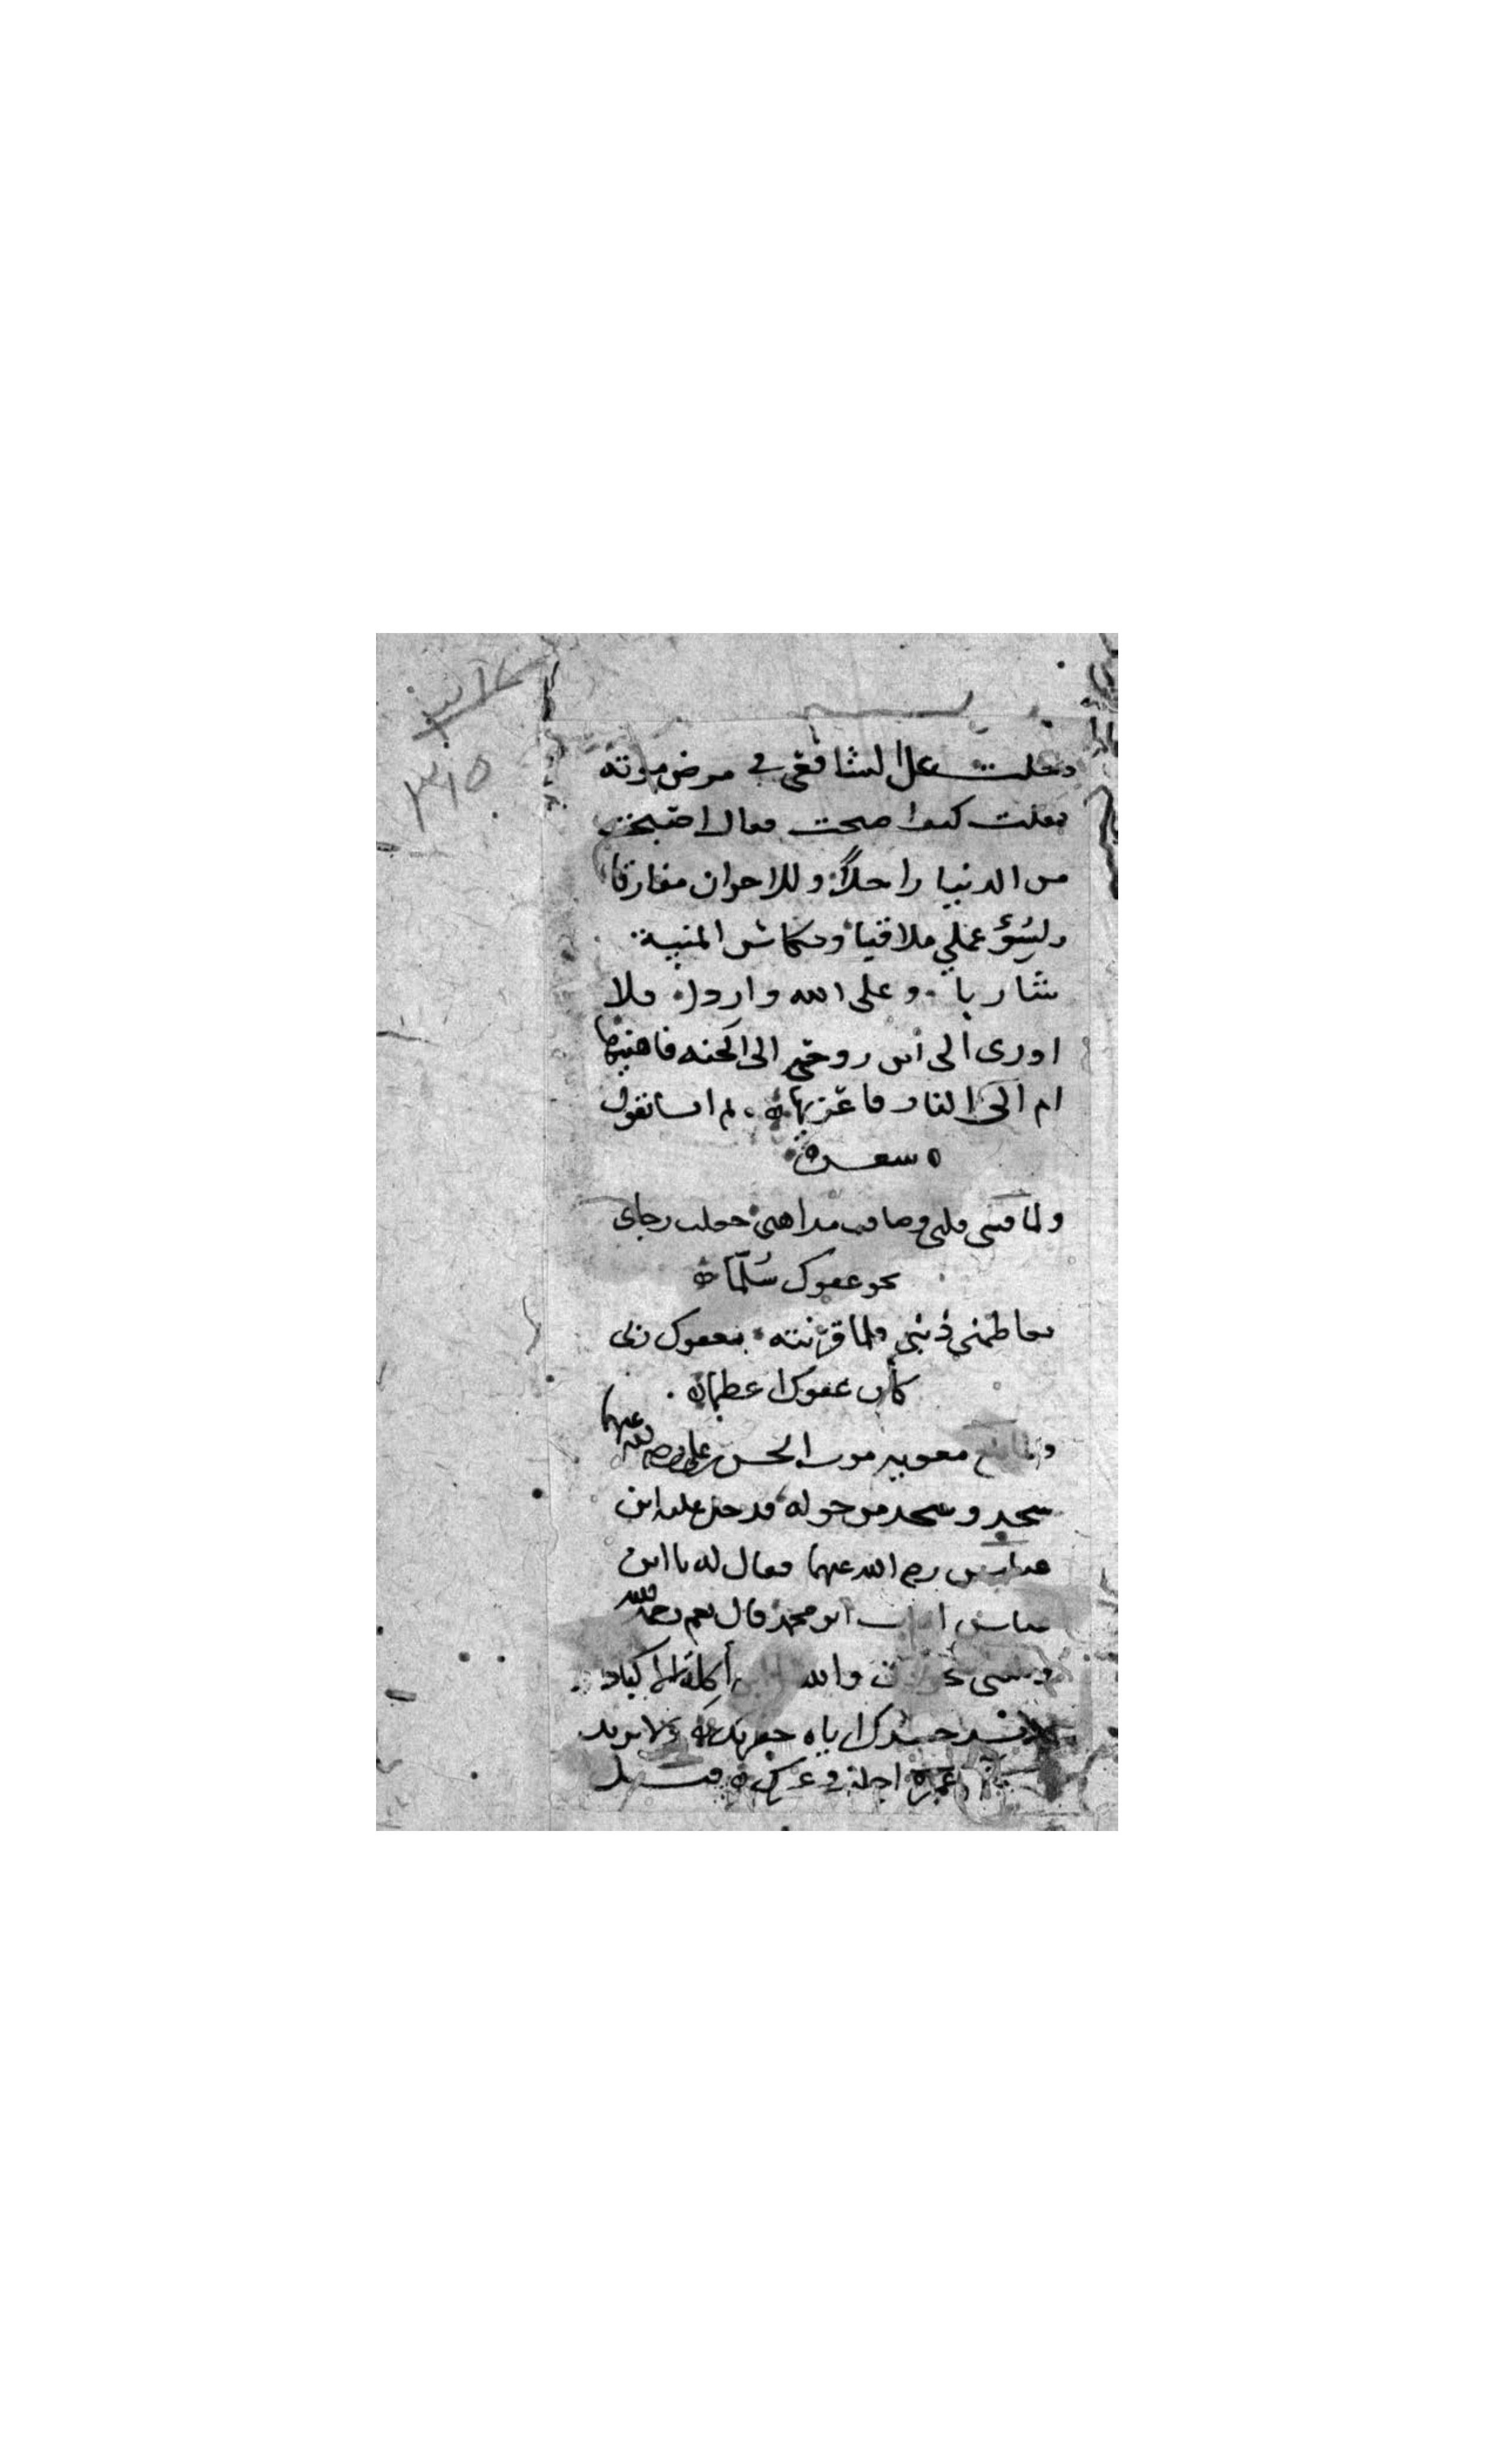 ٣١٤
٣١٥
دخلت على الشافعي في مرض موته
فقلت كيف اصبحت فقال اصبحت
من الدنيا راحلاً وللاخوان مفارقا
ولسُوء عملي ملاقيا وبكاس المنية
شاربا وعلى الله واردا فلا
ادرى الى اين روحي الى الجنه فاهنيها
ام الى النار فاعزيها ثم انسا يقول
شعر
ولما قسى قلبي وضاقت مذاهبي جعلت رجاى
نحو عفوك سُلّما
تعاظمني ذنبي فلما قرنته بعفوك ربي
كان عفوك اعظما
ولما بلغ معويه موت الحسن بن علي رضي الله عنهما
سجد وسجد من حوله فدخل عليه ابن
عباس رضي الله عنهما فقال له يا ابن
عباس امات ابو محمد قال نعم رحمه الله
والله يا ابن آكلة الاكباد
لا يسد جسدك اياه حفرتك ولا يزيد
اجله في عمرك